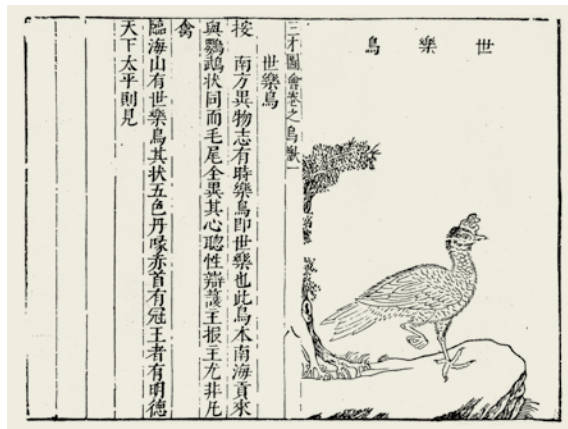 世樂鳥
三才圖會卷之鳥獸一
世樂鳥
按 南方異物志有時樂鳥即世樂也此鳥本南海貢來
與鸚鵡状同而毛尾全異其心聰性辯護主报主尤非凢
禽
臨海山有世樂鳥其状五色丹喙赤首有冠王者有明德
天下太平則見